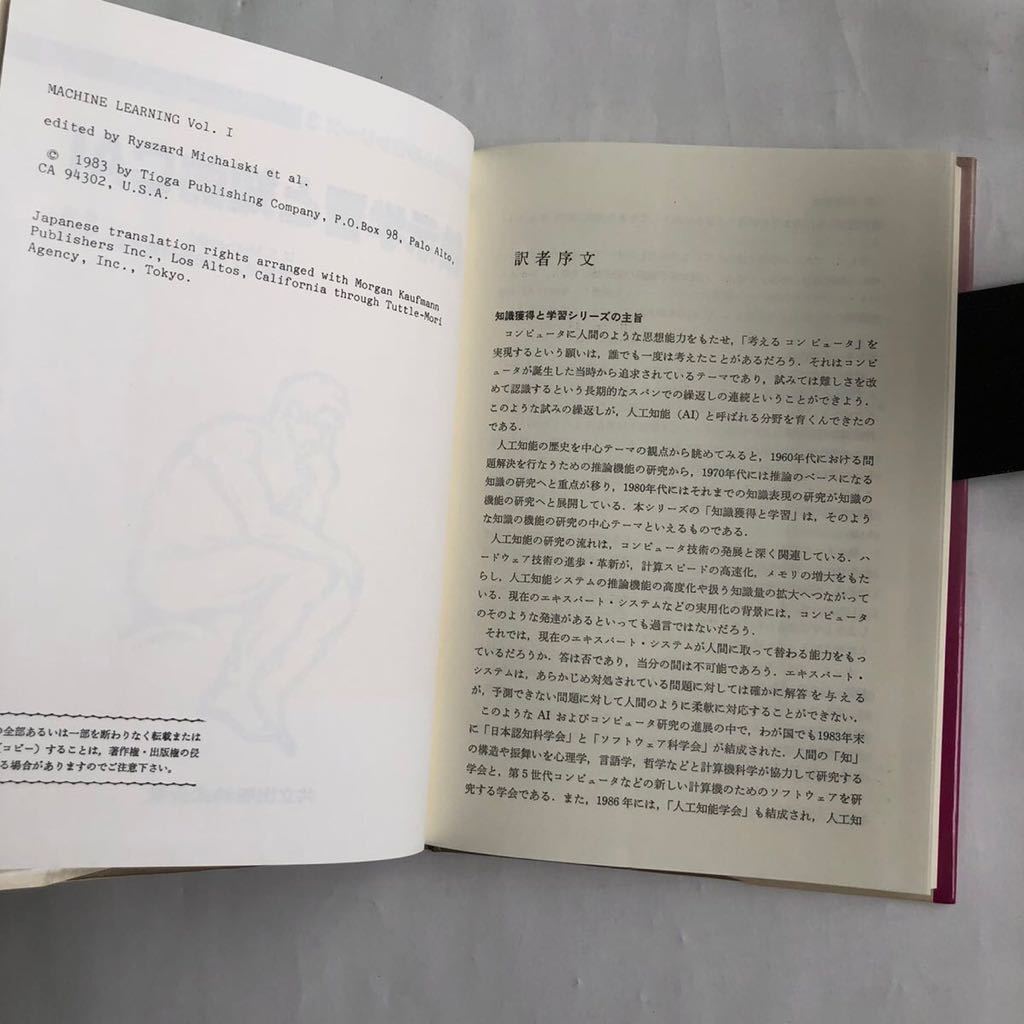 MACHINE LEARNING Vol. I
edited by Ryszard Michalski et al.
© 1983 by Tioga Publishing Company, P.O.Box 98, Palo Alto,
CA 94302, U.S.A.
Japanese translation rights arranged with Morgan Kaufmann
Publishers Inc., Los Altos, California through Tuttle-Mori
Agency, Inc., Tokyo.
の全部あるいは一部を断わりなく転載または
(コピー)することは，著作権・出版権の侵
る場合がありますのでご注意下さい。
訳者序文
知識獲得と学習シリーズの主旨
コンピュータに人間のような思想能力をもたせ，「考える コン ピュータ」を
実現するという願いは，誰でも一度は考えたことがあるだろう．それはコンピ
ュータが誕生した当時から追求されているテーマであり，試みては難しさを改
めて認識するという長期的なスパンでの繰返しの連続ということができよう．
このような試みの繰返しが，人工知能（AI）と呼ばれる分野を育くんできたの
である．
人工知能の歴史を中心テーマの観点から眺めてみると，1960年代における問
題解決を行なうための推論機能の研究から，1970年代には推論のベースになる
知識の研究へと重点が移り，1980年代にはそれまでの知識表現の研究が知識の
機能の研究へと展開している．本シリーズの「知識獲得と学習」は，そのよう
な知識の機能の研究の中心テーマといえるものである．
人工知能の研究の流れは，コンピュータ技術の発展と深く関連している．ハ
ードウェア技術の進歩・革新が，計算スピードの高速化，メモリの増大をもた
らし，人工知能システムの推論機能の高度化や扱う知識量の拡大へつながって
いる．現在のエキスパート・システムなどの実用化の背景には，コンピュータ
のそのような発達があるといっても過言ではないだろう．
それでは，現在のエキスパート・システムが人間に取って替わる能力をもっ
ているだろうか．答は否であり，当分の間は不可能であろう．エキスパート・
システムは，あらかじめ対処されている問題に対しては確かに解答を与える
が，予測できない問題に対して人間のように柔軟に対応することができない．
このような AI およびコンピュータ研究の進展の中で，わが国でも1983年末
に「日本認知科学会」と「ソフトウェア科学会」が結成された．人間の「知」
の構造や振舞いを心理学，言語学，哲学などと計算機科学が協力して研究する
学会と，第5世代コンピュータなどの新しい計算機のためのソフトウェアを研
究する学会である．また，1986年には，「人工知能学会」も結成され，人工知